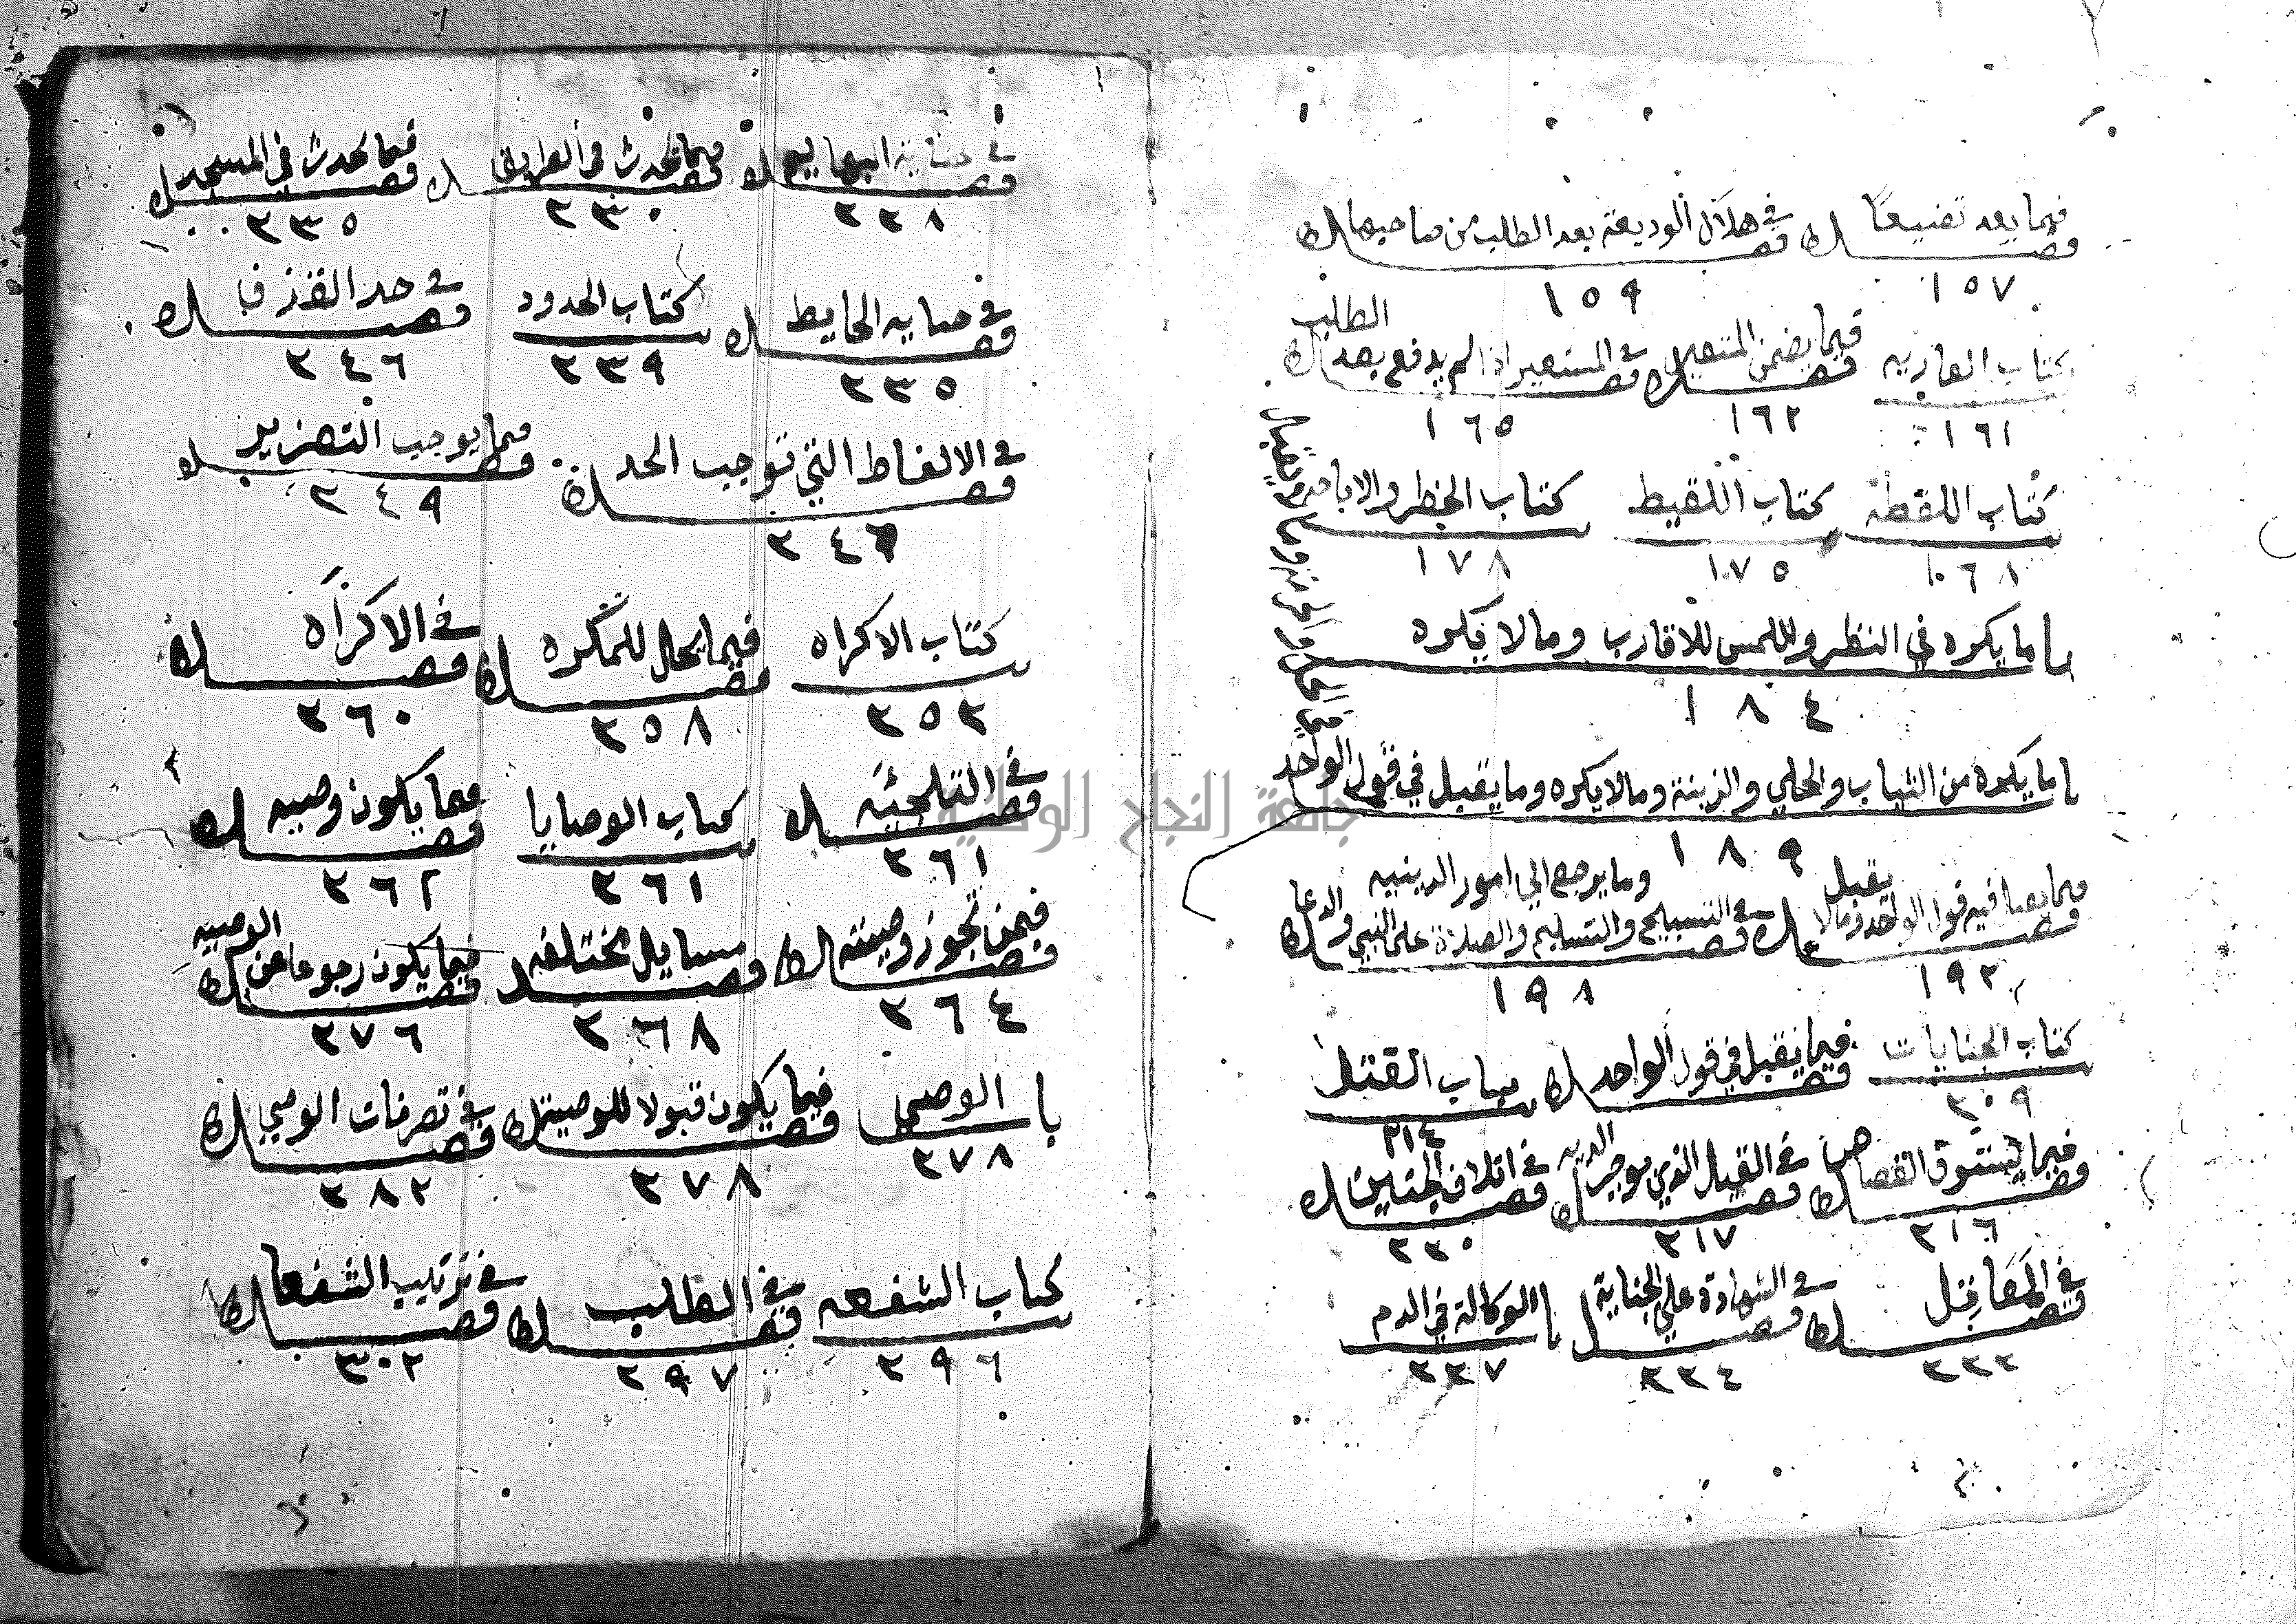 فصل فيما يعد تضييعا فصل في هلاك الوديعة بعد الطلب من صاحبها
١٥٧ ١٥٩
كتاب العاريه فصل فيما يضمن المستعير فصل في المستعير اذا لم يدفع بعد الطلب
١٦١ ١٦٢ ١٦٥
كتاب اللقطة كتاب اللقيط كتاب الحظر والاباحة
١٦٨ ١٧٥ ١٧٨
باب ما يكره في النظر واللمس للاقارب وما لا يكره
١٨٤
باب ما يكره من الثياب والحلي والزينة وما لا يكره وما يقبل في قول الواحد
١٨٩
فصل فيما يقبل فيه قول الواحد وما لا يقبل فصل في التسبيح والتسليم والصلاة على النبي والدعا وما يرجع الي امور الدينيه
١٩٢ ١٩٨
كتاب الجنايات فصل فيما يقبل في قول الواحد باب القتل
٢٠٩ ٢١٤
فصل فيما يستوق القصاص فصل في القتل الذي يوجب الديه فصل في اتلاف الجنين
٢١٦ ٢١٧ ٢٢٠
فصل في المعاقل فصل في الشهادة علي الجناية باب الوكالة في الدم
٢٢٢ ٢٢٤ ٢٢٧
فصل في جناية البهايم فصل فيما يحدث في الطريق فصل فيما يحدث في المسجد
٢٢٨ ٢٣٠ ٢٣٥
فصل في جنايه الحايط كتاب الحدود فصل في حد القذف
٢٣٥ ٢٣٩ ٢٤٦
فصل في الالفاظ التي توجب الحد فصل فيما يوجب التعزير
٢٤٦ ٢٤٩
كتاب الاكراه فصل فيما يحل للمكره فصل في الاكراه
٢٥٣ ٢٥٨ ٢٦٠
فصل في التلجئه كتاب الوصايا فصل فيما يكون وصيه
٢٦١ ٢٦١ ٢٦٢
فصل فيمن تجوز وصيته فصل مسايل مختلفه فصل فيما يكون رجوعا عن الوصيه
٢٦٤ ٢٦٨ ٢٧٦
باب الوصي فصل فيما يكون قبولا للوصية فصل في تصرفات الوصي
٢٧٨ ٢٧٨ ٢٨٢
كتاب الشفعه فصل في الطلب فصل في ترتيب الشفعا
٢٩٦ ٢٩٧ ٣٠٢
جامعة النجاح الوطنية